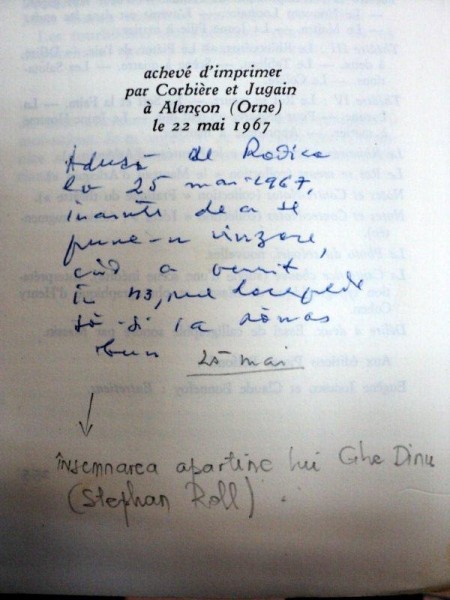 achevé d'imprimer
par Corbière et Jugain
à Alençon (Orne)
le 22 mai 1967
Adusă de Rodica
la 25 mai 1967,
înainte de a se
pune-n vînzare,
cînd a venit
în
să-și ia rămas
bun 25 mai
însemnarea aparține lui Ghe Dinu
(Stephan Roll)